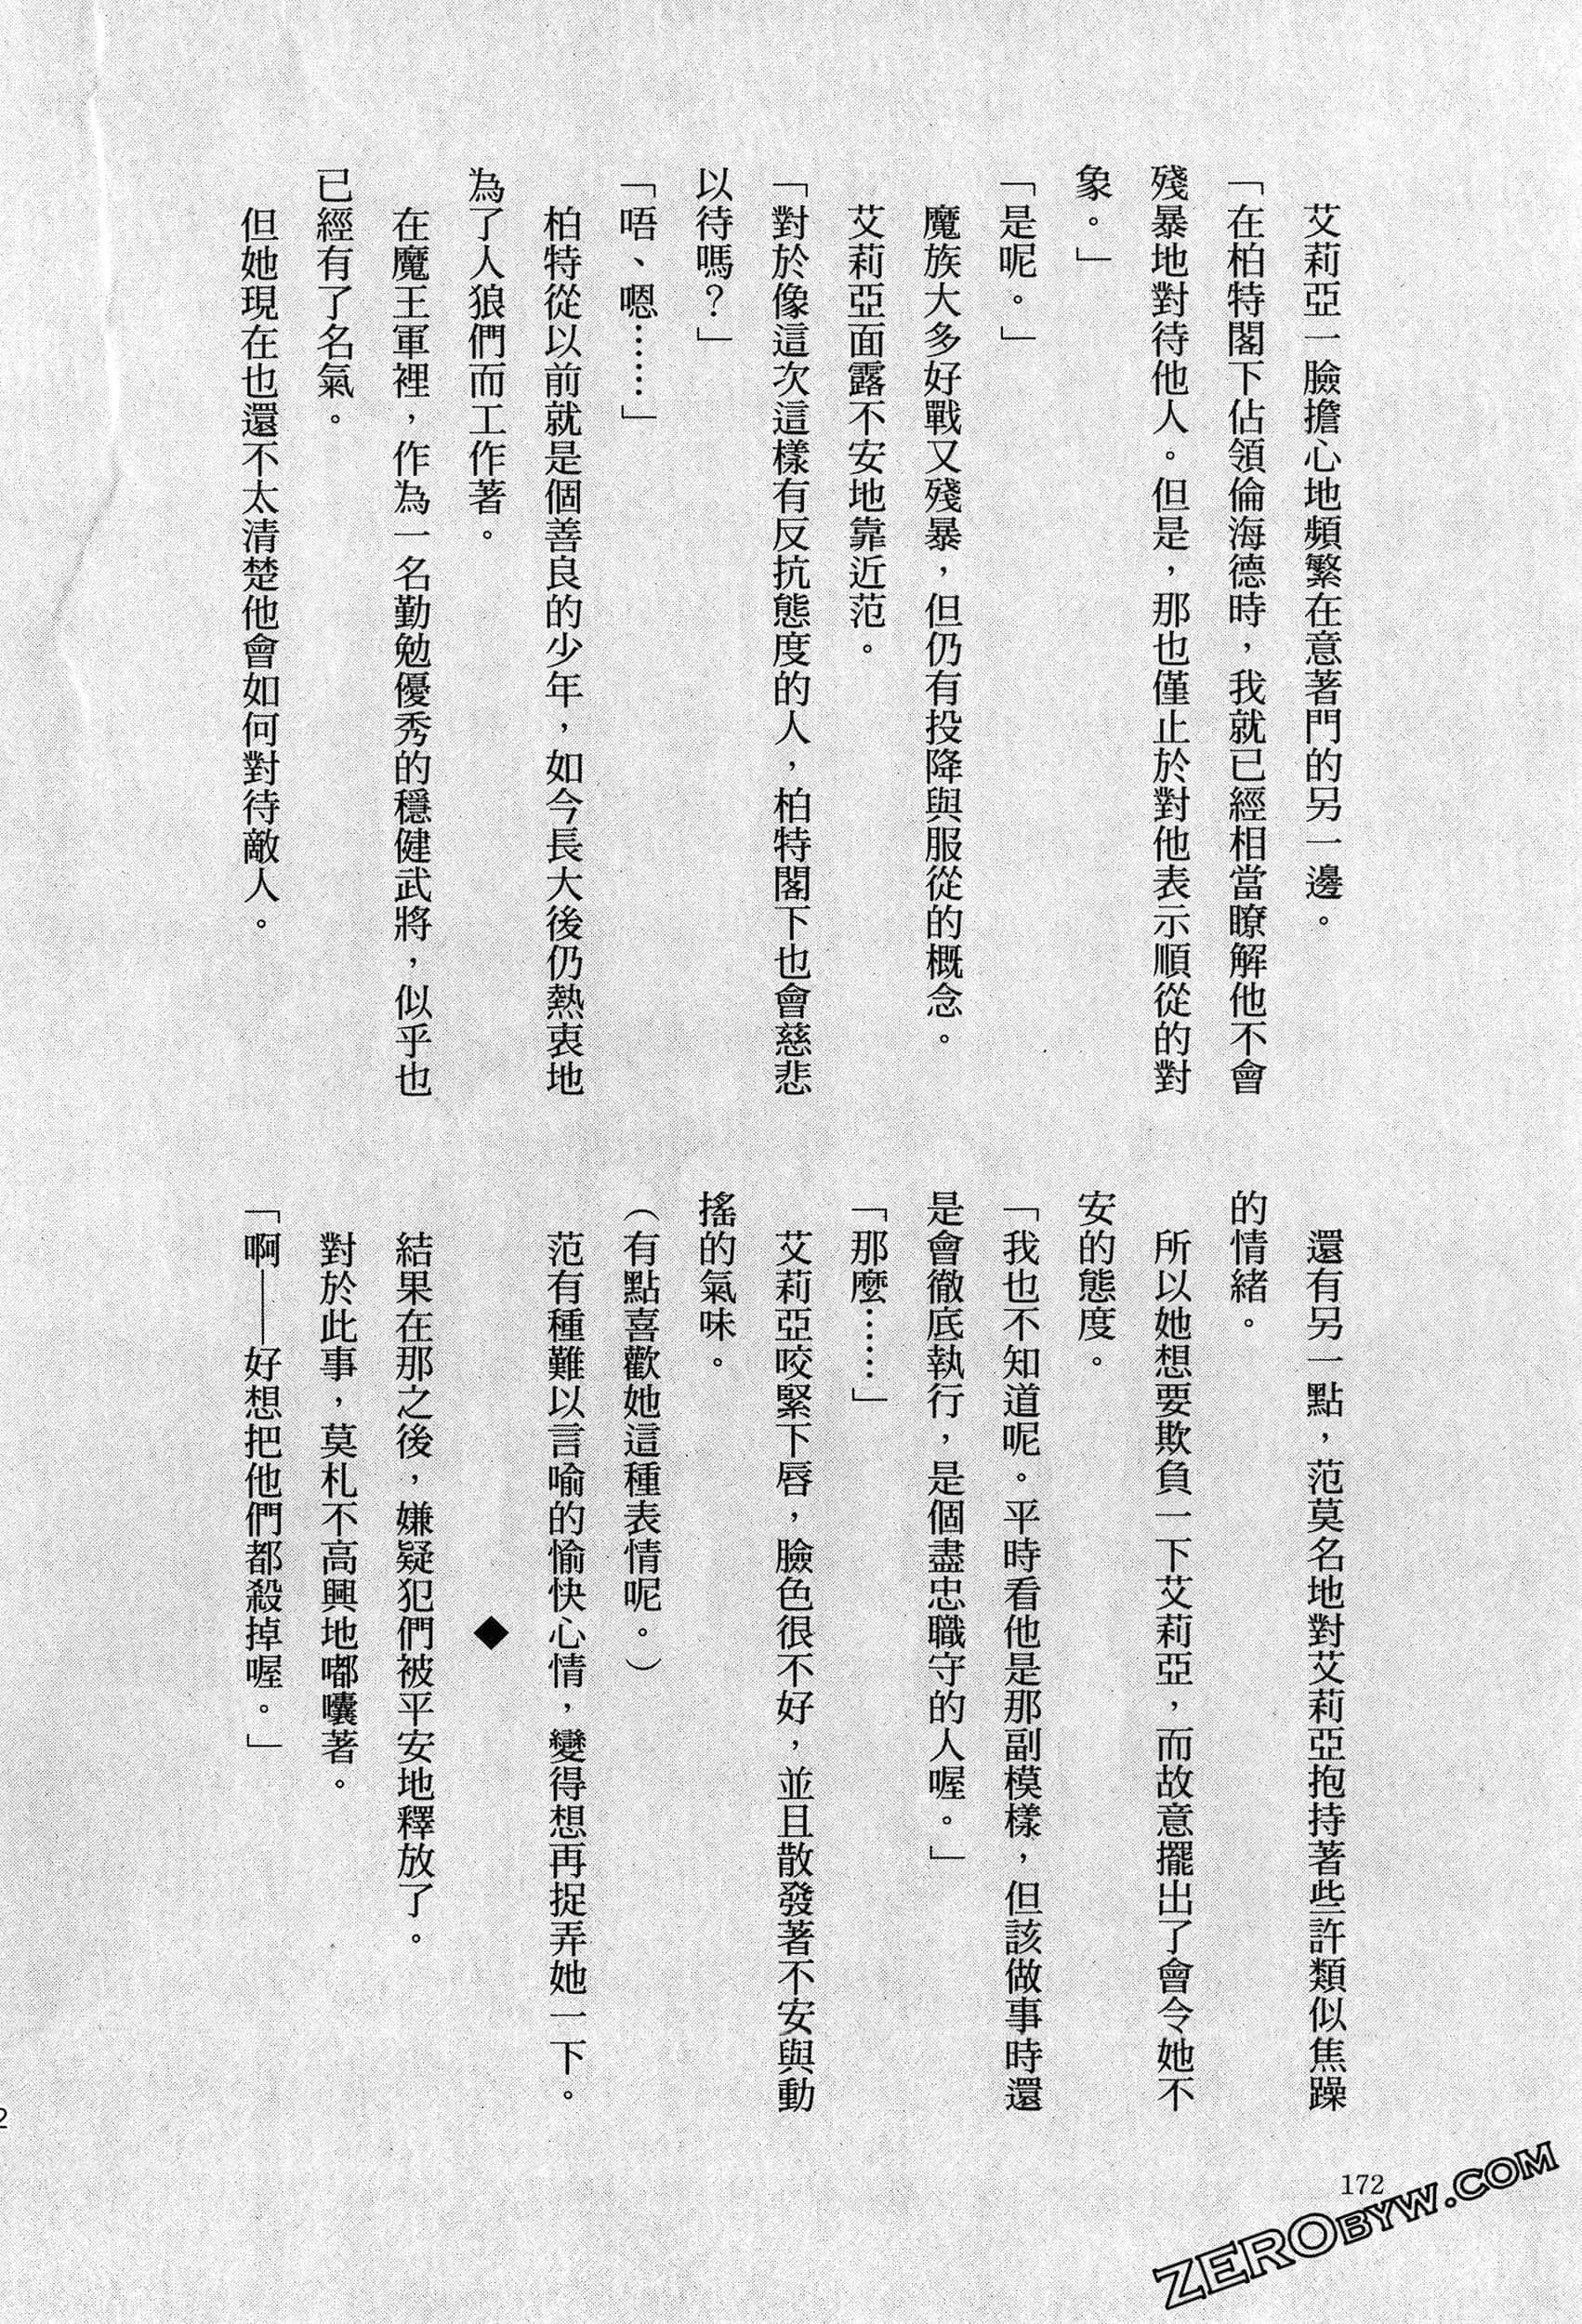 艾莉亞一臉擔心地頻繁在意著門的另一邊。
「在柏特閣下佔領倫海德時，我就已經相當瞭解他不會
殘暴地對待他人。但是，那也僅止於對他表示順從的對
象。」
「是呢。」
魔族大多好戰又殘暴，但仍有投降與服從的概念。
艾莉亞面露不安地靠近范。
「對於像這次這樣有反抗態度的人，柏特閣下也會慈悲
以待嗎？」
「唔、嗯……」
柏特從以前就是個善良的少年，如今長大後仍熱衷地
為了人狼們而工作著。
在魔王軍裡，作為一名勤勉優秀的穩健武將，似乎也
已經有了名氣。
但她現在也還不太清楚他會如何對待敵人。
還有另一點，范莫名地對艾莉亞抱持著些許類似焦躁
的情緒。
所以她想要欺負一下艾莉亞，而故意擺出了會令她不
安的態度。
「我也不知道呢。平時看他是那副模樣，但該做事時還
是會徹底執行，是個盡忠職守的人喔。」
「那麼……」
艾莉亞咬緊下唇，臉色很不好，並且散發著不安與動
搖的氣味。
（有點喜歡她這種表情呢。）
范有種難以言喻的愉快心情，變得想再捉弄她一下。
◆
結果在那之後，嫌疑犯們被平安地釋放了。
對於此事，莫札不高興地嘟囔著。
「啊——好想把他們都殺掉喔。」
172
2
ZEROBYW.COM